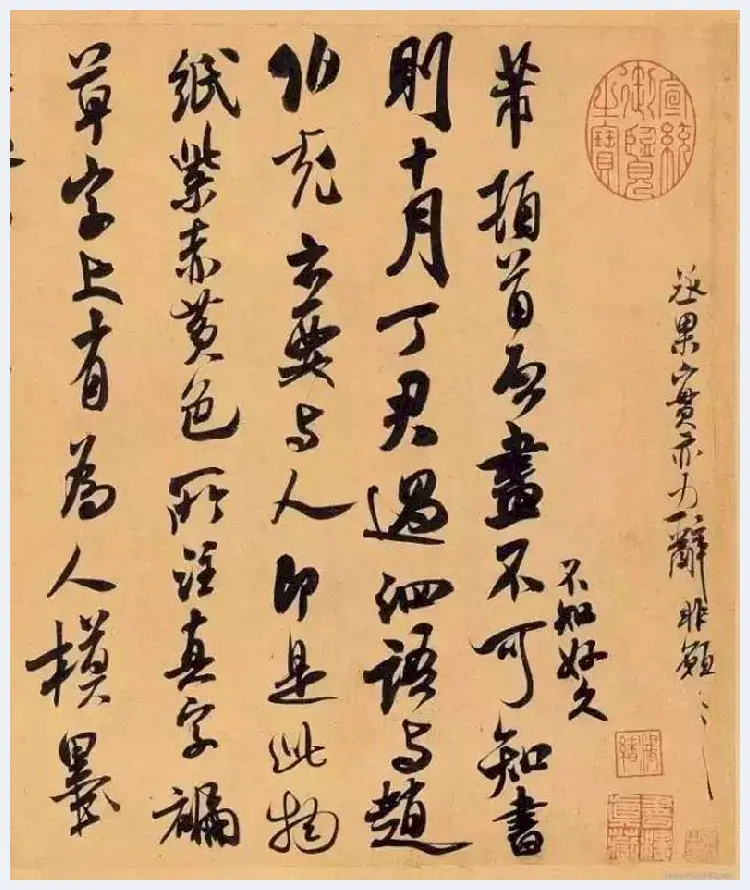 宣統御覽之寶
丞果亦力辭非願
不知好久
芾頓首啓畫不可知書
則十月丁君過泗語与趙
伯充云要与人即是此物
紙紫赤黃色所注真字褊
草字上有為人模墨